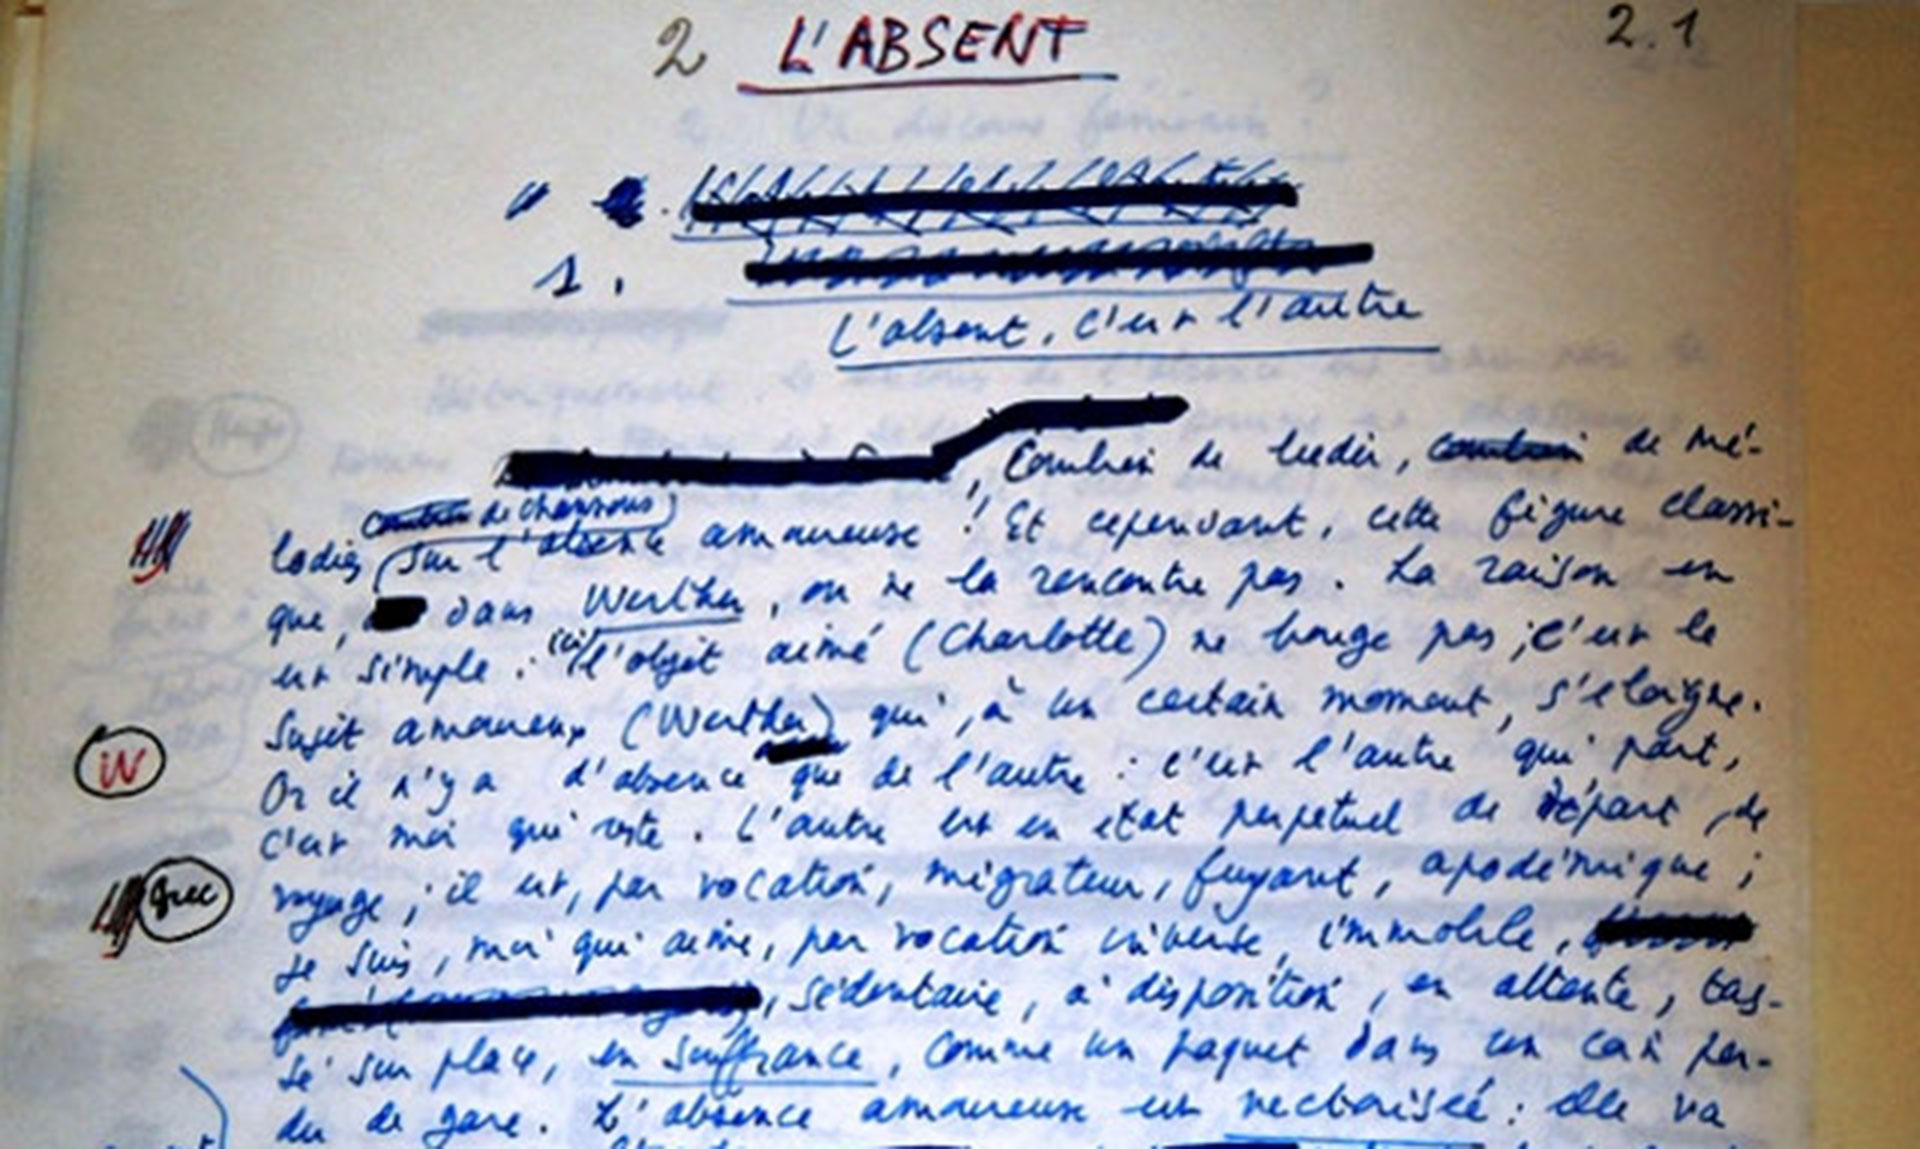 2 L'ABSENT 2.1
1.
L'absent, c'est l'autre
, Combien de lieder, combien de mé-
combien de chansons
lodies sur l'absence amoureuse ! Et cependant, cette figure classi-
que, dans Werther, on ne la rencontre pas. La raison en
est simple : (ici) l'objet aimé (Charlotte) ne bouge pas ; c'est le
sujet amoureux (Werther) qui, à un certain moment, s'éloigne.
W
Or il n'y a d'absence que de l'autre : c'est l'autre qui part,
c'est moi qui reste. L'autre est en état perpétuel de départ, de
Grec
voyage ; il est, par vocation, migrateur, fuyant, apodémique ;
je suis, moi qui aime, par vocation inverse, immobile,
, sédentaire, à disposition, en attente, tas-
sé sur place, en souffrance, comme un paquet dans un coin per-
du de gare. L'absence amoureuse est vectorisée : elle va